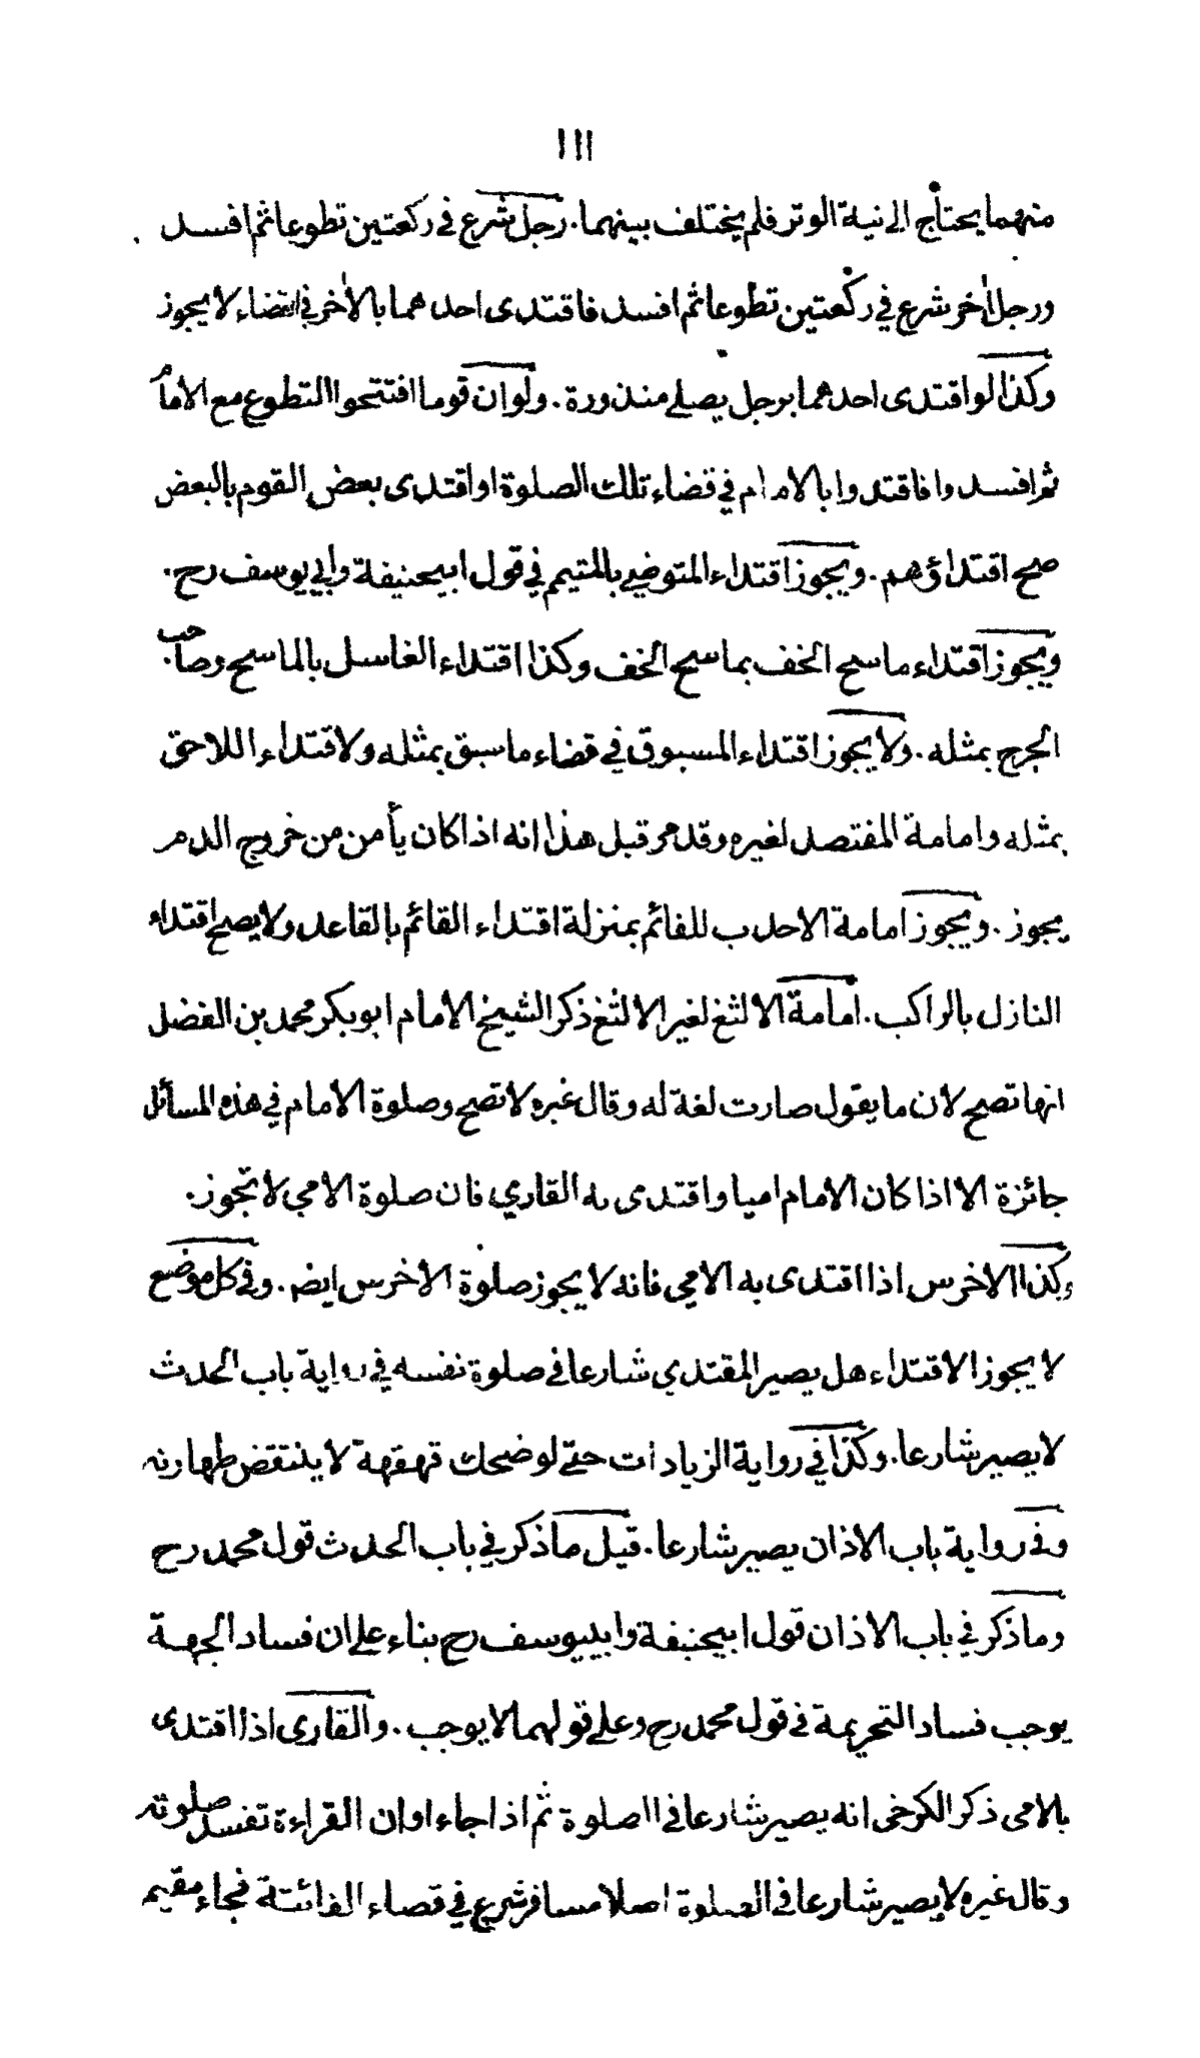 ١١١
منهما يحتاج الى نية الوتر فلم يختلف بينهما. رجل شرع في ركعتين تطوعا ثم افسد
ورجل اٰخر شرع في ركعتين تطوعا ثم افسد فاقتدى احدهما بالاٰخر في القضاء لا يجوز
وكذا لو اقتدى احدهما برجل يصلي منذورة. ولو ان قوما افتتحوا التطوع مع الامام
ثم افسدوا فاقتدوا بالامام في قضاء تلك الصلوة او اقتدى بعض القوم بالبعض
صح اقتداؤهم. ويجوز اقتداء المتوضي بالمتيمم في قول ابيحنيفة وابي يوسف رح.
ويجوز اقتداء ماسح الخف بماسح الخف وكذا اقتداء الغاسل بالماسح وصاحب
الجرح بمثله. ولا يجوز اقتداء المسبوق في قضاء ما سبق بمثله ولا اقتداء اللاحق
بمثله وامامة المفتصد لغيره وقد مر قبل هذا انه اذا كان يأمن من خروج الدم
يجوز. ويجوز امامة الاحدب للقائم بمنزلة اقتداء القائم بالقاعد ولا يصح اقتداء
النازل بالراكب. امامة الالثغ لغير الالثغ ذكر الشيخ الامام ابو بكر محمد بن الفضل
انها تصح لان ما يقول صارت لغة له وقال غيره لا تصح وصلوة الامام في هذه المسائل
جائزة الا اذا كان الامام اميا واقتدى به القاري فان صلوة الامي لا تجوز.
وكذا الاخرس اذا اقتدى به الامي فانه لا يجوز صلوة الاخرس ايضم. وفي كل موضع
لا يجوز الاقتداء هل يصير المقتدي شارعا في صلوة نفسه في رواية باب الحدث
لا يصير شارعا. وكذا في رواية الزيادات حتى لو ضحك قهقهة لا ينتقض طهارته
وفي رواية باب الاذان يصير شارعا. قيل ما ذكر في باب الحدث قول محمد رح
وما ذكر في باب الاذان قول ابيحنيفة وابييوسف رح بناء على ان فساد الجهة
يوجب فساد التحريمة في قول محمد رح وعلى قولهما لا يوجب. والقارى اذا اقتدى
بالامي ذكر الكرخي انه يصير شارعا في الصلوة ثم اذا جاء اوان القراءة تفسد صلوته
وقال غيره لا يصير شارعا في الصلوة اصلا مسافر شرع في قضاء الفائتة فجاء مقيم